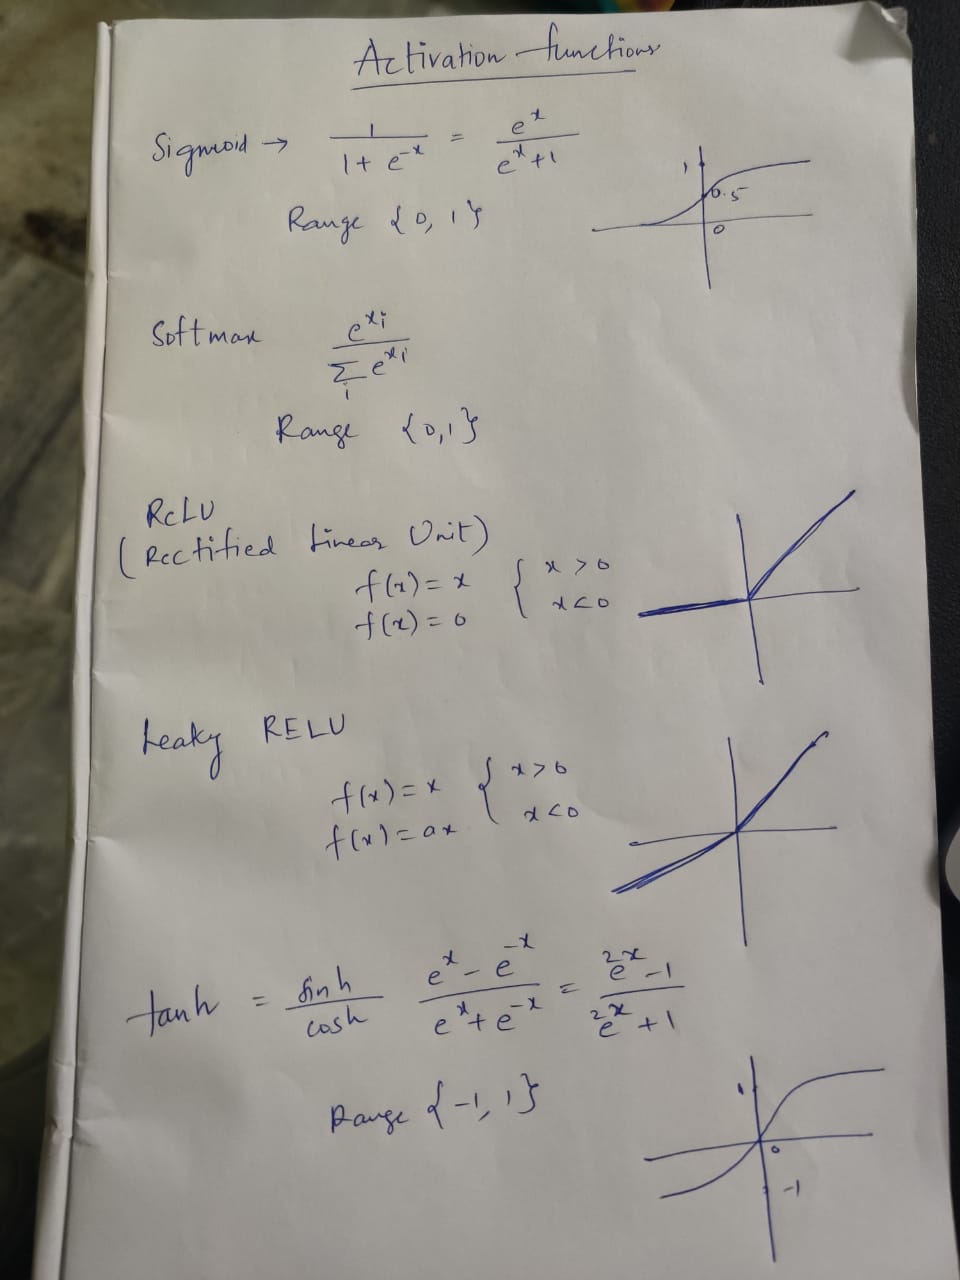 Activation functions
Sigmoid → 1/(1 + e^-x) = e^x/(e^x + 1)
Range {0, 1}
1
0.5
0
Softmax e^xi / Σ_i e^xi
Range {0,1}
ReLU
(Rectified Linear Unit)
f(x) = x { x > 0
f(x) = 0 x < 0
Leaky RELU
f(x) = x { x > 0
f(x) = ax x < 0
tanh = sinh/cosh (e^x - e^-x)/(e^x + e^-x) = (e^2x - 1)/(e^2x + 1)
Range {-1, 1}
1
0
-1